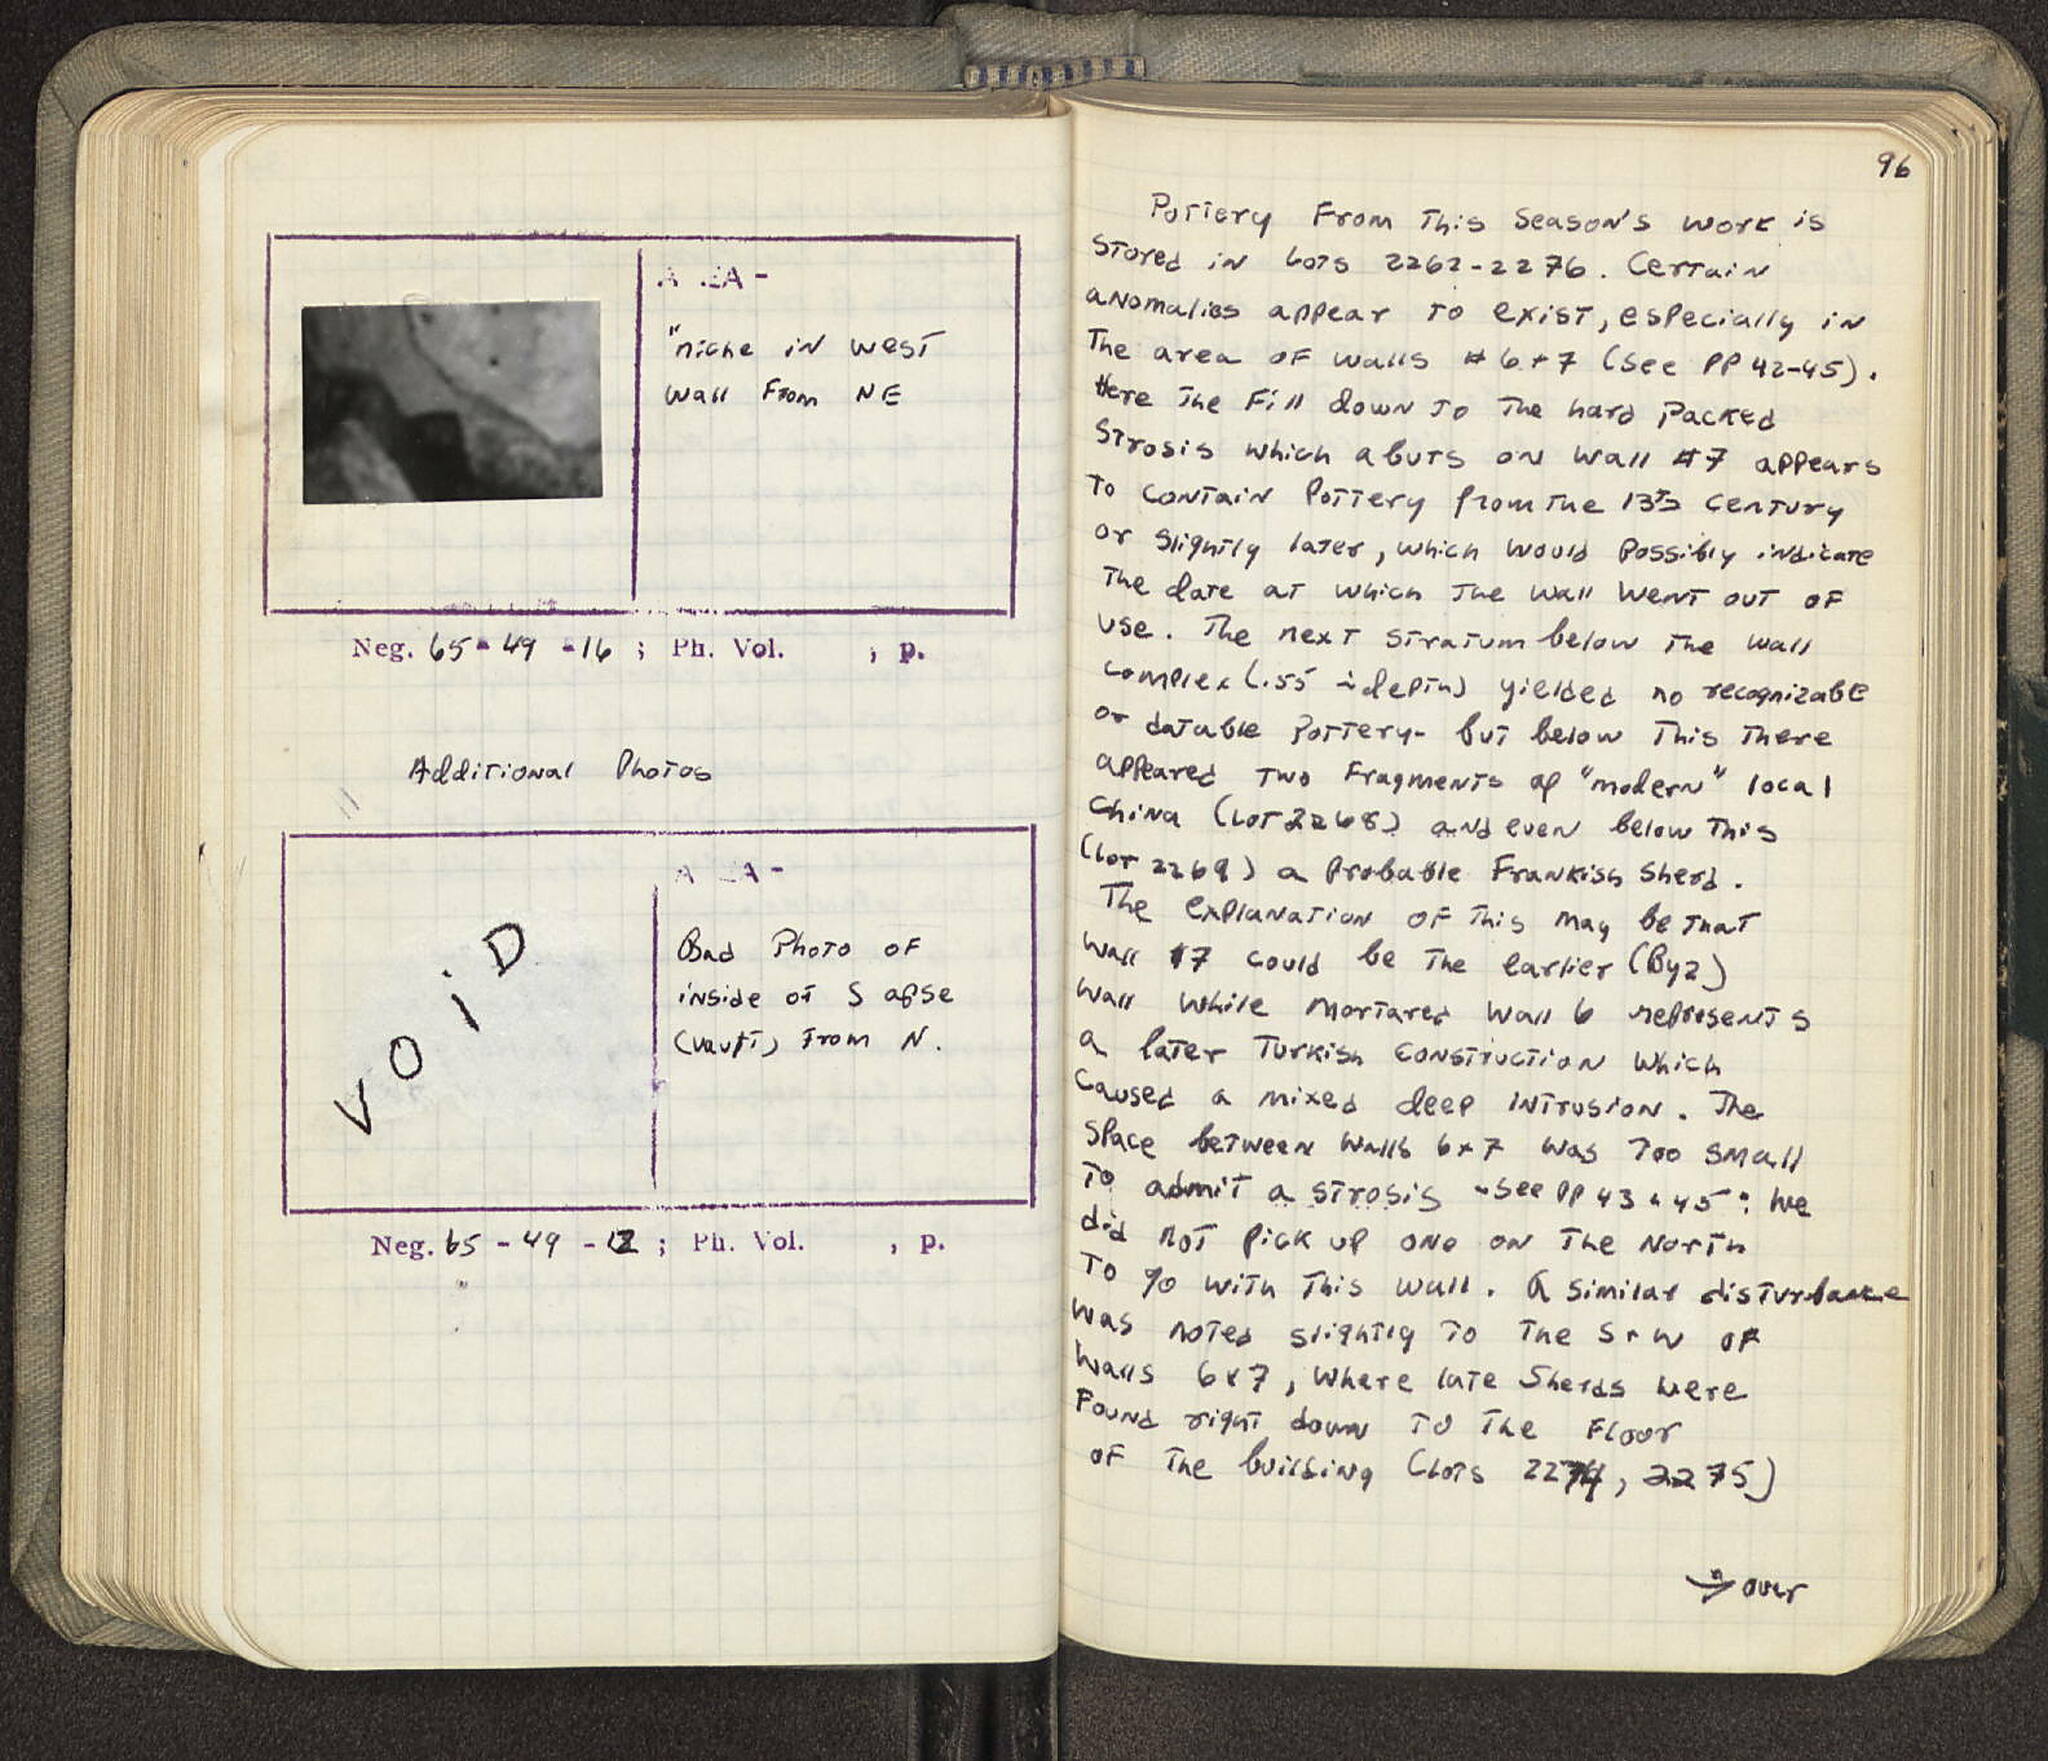 A EA -
"niche in west
wall From NE
Neg. 65 - 49 - 16 ; Ph. Vol. , p.
Additional Photos
A EA -
VOiD
Bad Photo of
inside of S apse
(vault) From N.
Neg. 65 - 49 - 12 ; Ph. Vol. , p.
96
Pottery From This Season's work is
Stored in Lots 2262-2276. Certain
anomalies appear to exist, especially in
The area of walls # 6+7 (See PP 42-45).
Here The Fill down to The hard Packed
Strosis which abuts on wall #7 appears
To contain Pottery from the 13th century
or slightly later, which would Possibly indicate
The date at which The wall went out of
use. The next stratum below The wall
complex (.55 in depth) yielded no recognizable
or datable Pottery- but below This There
appeared Two Fragments of "modern" local
China (Lot 2268) and even below This
(Lot 2269) a Probable Frankish Sherd.
The explanation of This may be That
Wall #7 could be The earlier (Byz)
Wall while Mortared Wall 6 represents
a later Turkish construction which
caused a mixed deep intrusion. The
Space between walls 6+7 was Too small
To admit a strosis - see pp 43 + 45 : We
did not Pick up one on The North
To go with This wall. A similar disturbance
was noted slightly To The S + W of
Walls 6+7, where late Sherds were
Found right down To The Floor
of The building (Lots 2274, 2275)
→ over